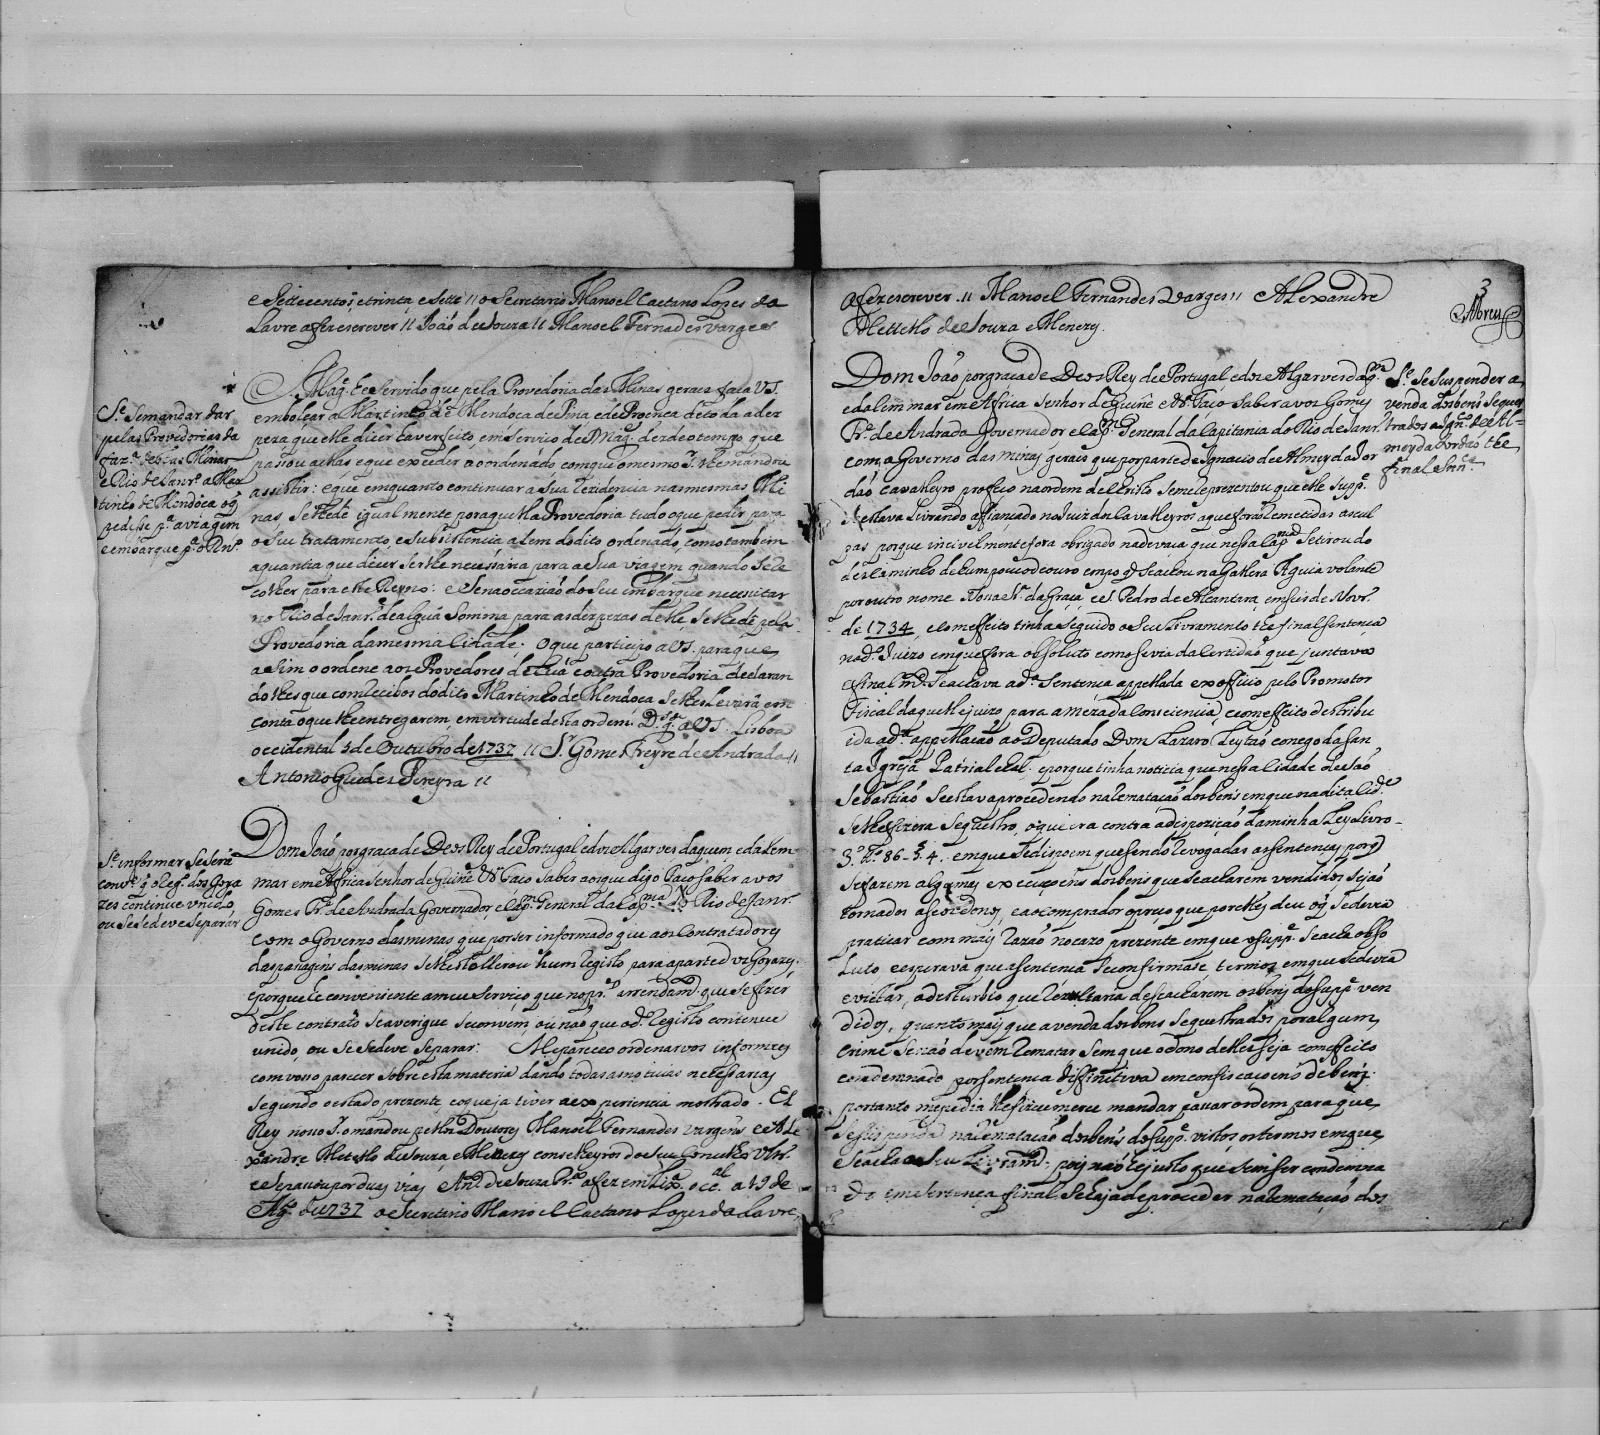 e Settecentos, etrinta, e Sette // o Secretario Manoel Caetano Lopes da
Lavre a fez escrever // João de Souza // Manoel Fernandes Varges
S. Mag.e he Servido que pela Provedoria das Minas geraes faça VS.
embolçar a Martinho de Mendoça de Pina e de Proença de toda a dez
peza que elle dicer haver feito, em Serviço de S. Mag.e dezde o tempo que
passou a ellas, e que exceder ao ordenado com que o mesmo S.r lhe mandou
assistir: e que emquanto continuar a Sua rezidencia nas mesmas Mi
nas Se lhe dê igualmente por aquella Provedoria tudo o que pedir para
o Seu tratamento, e Subsistencia alem do dito ordenado, como tambem
a quantia que dicer Ser lhe necessaria para a Sua viagem quando Se re
colher para este Reyno: e Se na occazião do Seu embarque necessitar
no Rio de Janr.o de algũa Somma para as dezpezas delle Se lhe dê pela
Provedoria da mesma Cidade; o que participo a VS. para que
assim o ordene aos Provedores de hũa e outra Provedoria declaran
do lhes que com recibos do dito Martinho de Mendoça Se lhes levará em
conta o que lhe entregarem em virtude desta ordem. D.s g.e a VS. Lisboa
occidental 5 de Outubro de 1737 // S.r Gomes Freyre de Andrada //
Antonio Guedes Pereyra //
S.e Se mandar dar
pelas Provedorias da
faz.a delas Minas
e Rio de Janr.o a Mar
tinho de Mendoça o q̃
pedisse p.a a viagem
e embarque p.a o Rn.o
Dom João por graça de Deos Rey de Portugal e dos Algarves daquem, e dalem
mar em Africa Senhor de Guiné &.a Faço Saber aos que digo Faço saber a vos
Gomes Fr.e de Andrada Governador e Cap.m General da Cap.nia do Rio de Janr.o
com o Governo das minas que por ser informado que aos Contratadores
das passagens das minas Se lhes tolherou hum registo para a parte dos Goyazes:
e porque he conveniente a meu Serviço que no pr.o arrendam.to que Se fizer
deste contrato Se averigue Se convem, ou não que o d.o registo continue
unido, ou Se Se deve Separar: Me pareceo ordenarvos informeis
com vosso parecer Sobre esta materia dando todas as noticias necessarias
Segundo o estado prezente, e o que ja tiver a experiencia mostrado. El
Rey nosso S.r o mandou pellos Doutores Manoel Fernandes Varges e Ale
xandre Metello de Souza e Menezes conselheyros do Seu Cons.o Ultr.o
e Se passou por duas vias An.to de Souza Pr.a a fez em Lix.a occ.al a 19 de
Ag.to de 1737 o Secretario Manoel Caetano Lopes da Lavre,
S.e informar Se Será
conv.te q̃ o Reg.o dos Goya
zes continue unido
ou Se Se deve Separar
3
Abreu
a fez escrever // Manoel Fernandes Varges // Alexandre
Metello de Souza e Menezes.
Dom João por graça de Deos Rey de Portugal, e dos Algarves daq.m
e dalem mar em Africa Senhor de Guiné &.a Faço Saber a vos Gomes
Fr.e de Andrada Governador e Cap.m General da Capitania do Rio de Janr.o
com o Governo das minas geraes que por parte de Ignacio de Almeyda Jor
dão Cavalleyro professo na ordem de Christo Se me reprezentou que elle Supp.e
Se estava Livrando affiançado no Juizo dos Cavalleyros a que forão remetidas as cul
pas porque incivilmente fora obrigado na devaça que nessa Cap.nia Se tirou do
descaminho de hum pouco de ouro em po q̃ Se achou na Gallera Aguia volante
por outro nome Nossa Sr.a da Graça, e S. Pedro de Alcantara, em Seis de Novr.o
de 1734, e com effeito tinha Seguido o Seu Livramento the final Sentença
no d.o Juizo em que fora absoluto como Se via da Certidão que juntava
e final m.te Se achava a d.a Sentença appellada ex officio pelo Promotor
Fiscal daquelle juizo, para a meza da Consciencia, e com effeito destribu
ida a d.a appellação ao Deputado Dom Lazaro Leytão conego da San
ta Igreja Patriarchal. e porque tinha noticia que nessa Cidade de São
Sebastião Se estava procedendo na rematação dos bens em que na dita Cid.e
Se lhe fizera Sequestro, o que era contra a dispozição da minha Ley Livro
3.o tt.o 86 - §. 4. em que Se dispoem que Sendo revogadas as Sentenças porq̃
Se fazem algumas execuçoens dos bens que Se acharem vendidos Sejão
tornados a Seos donos, e ao comprador o preço que por elles deu o q̃ Se devia
praticar com mais razão no cazo prezente em que o Supp.e Se acha abso
luto e esperava que a Sentença Se confirmasse, termos em que Se devia
evictar, o desturbio que rezultaria de Se acharem os bens do Supp.e ven
didos, quanto mais que a venda dos bens Sequestrados por algum
crime Se não devem rematar Sem que o dono delles Seja com effeito
condemnado por Sentença definitiva em confiscaçoens de bens.
portanto me pedia lhe fizesse merce mandar passar ordem para que
Se Suspenda na rematação dos bens do Supp.e vistos os termos em que
Se acha o Seu Livram.to, pois não he justo que Sem Ser condemna
do em Sentença final Se haja de proceder na rematação dos
S.e Se Suspender a
venda dos bens Seques
trados a Ign.o de Al-
meyda Jordão the
final Sn.ça